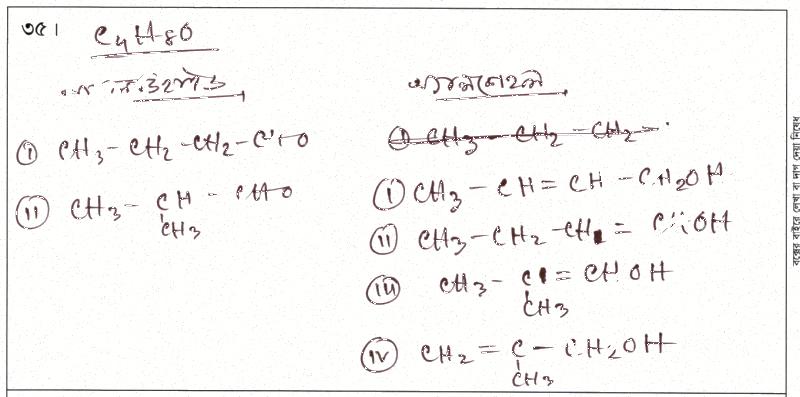 ৩৫।
C4H8O
অ্যালডিহাইড
(i) CH3-CH2-CH2-CHO
(ii) CH3-CH-CHO
CH3
অ্যালকোহল
(i) CH3-CH2-CH2-
(i) CH3-CH=CH-CH2OH
(ii) CH3-CH2-CH=CHOH
(iii) CH3-C=CHOH
CH3
(iv) CH2=C-CH2OH
CH3
বক্সের বাইরে লেখা বা দাগ দেয়া নিষেধ